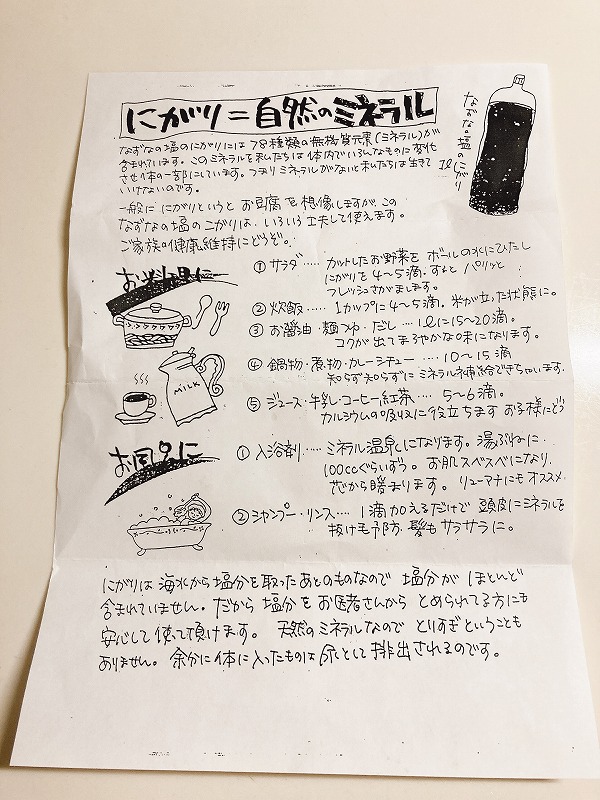 にがり=自然のミネラル
なずなの塩のにがり
1ℓ
なずなの塩のにがりには78種類の無機質元素(ミネラル)が
含まれています。このミネラルを私たちは体内でいろんなものに変化
させ体の一部にしています。つまりミネラルがないと私たちは生きて
いけないのです。
一般ににがりというとお豆腐を想像しますが、この
なずなの塩のにがりは、いろいろ工夫して使えます。
ご家族の健康維持にどうぞ。
お料理に
①サラダ‥‥カットしたお野菜をボールの水にひたし
にがりを4〜5滴。するとパリッと
フレッシュさがまします。
②炊飯‥‥1カップに4〜5滴。米が立った状態に。
③お醤油・麺つゆ・だし‥‥1ℓに15〜20滴。
コクが出てまろやかな味になります。
④鍋物・煮物・カレーシチュー‥‥10〜15滴
知らず知らずにミネラル補給できちゃいます。
⑤ジュース・牛乳・コーヒー紅茶‥‥5〜6滴。
カルシウムの吸収に役立ちます お子様にどう
MILK
お風呂に
①入浴剤‥‥ミネラル温泉になります。湯ぶねに
100ccぐらいずつ。お肌スベスベになり、
芯から暖まります。リューマチにもオススメ
②シャンプー・リンス‥‥1滴加えるだけで 頭皮にミネラルを
抜け毛予防、髪もサラサラに。
にがりは海水から塩分を取ったあとのものなので 塩分がほとんど
含まれていません。だから塩分をお医者さんからとめられてる方にも
安心して使って頂けます。天然のミネラルなのでとりすぎということも
ありません。余分に体に入ったものは尿として排出されるのです。